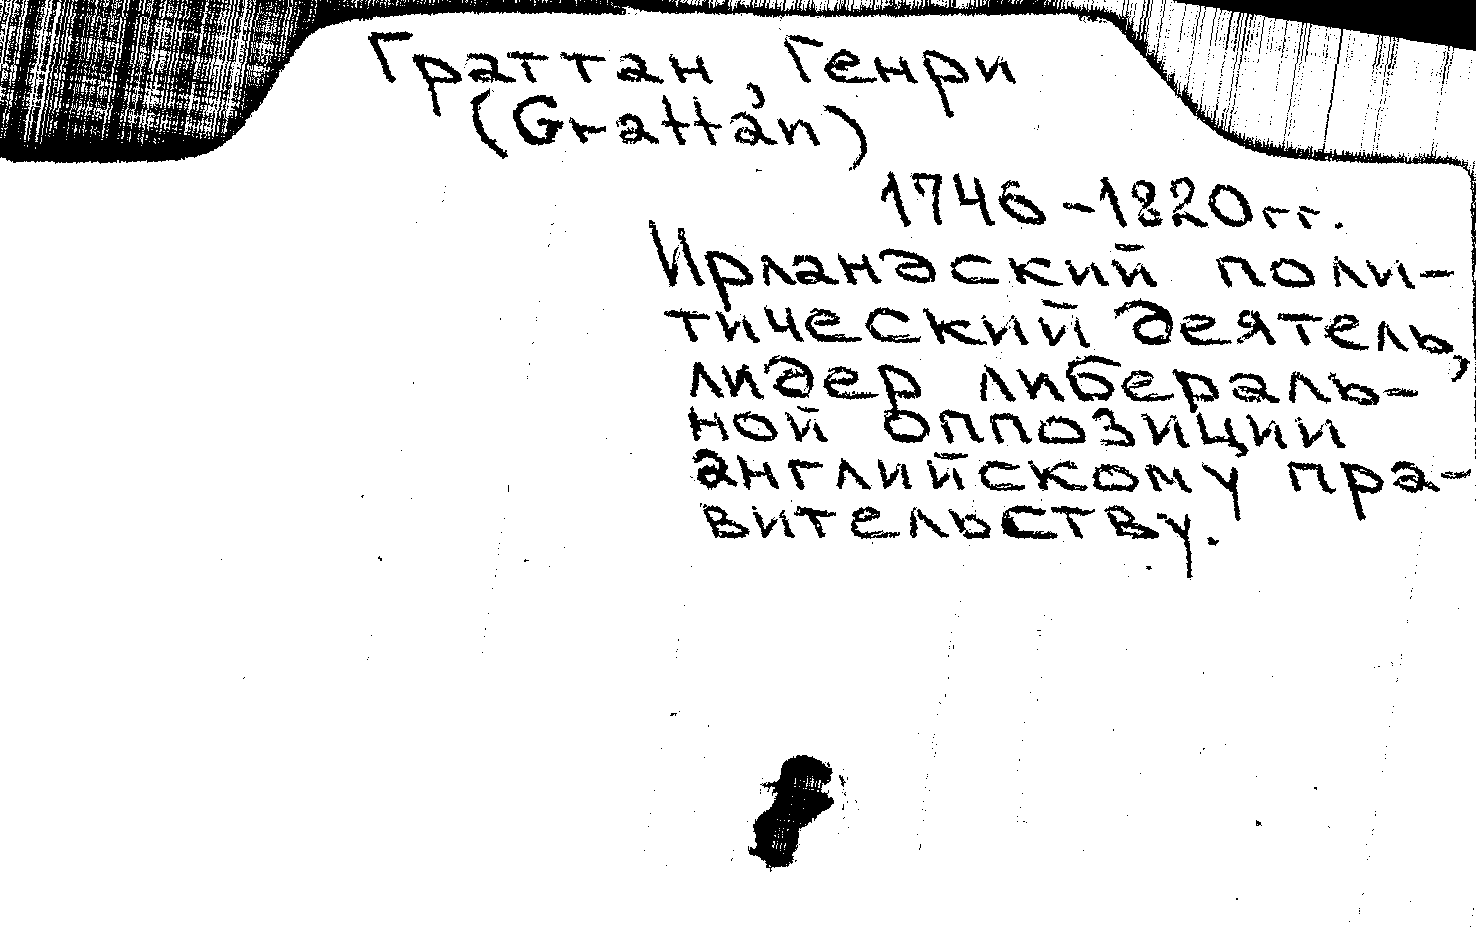 Граттан, Генри
(Grattan)
1746-1820гг.
Ирландский поли-
тический деятель,
лидер либераль-
ной оппозиции
английскому пра-
вительству.